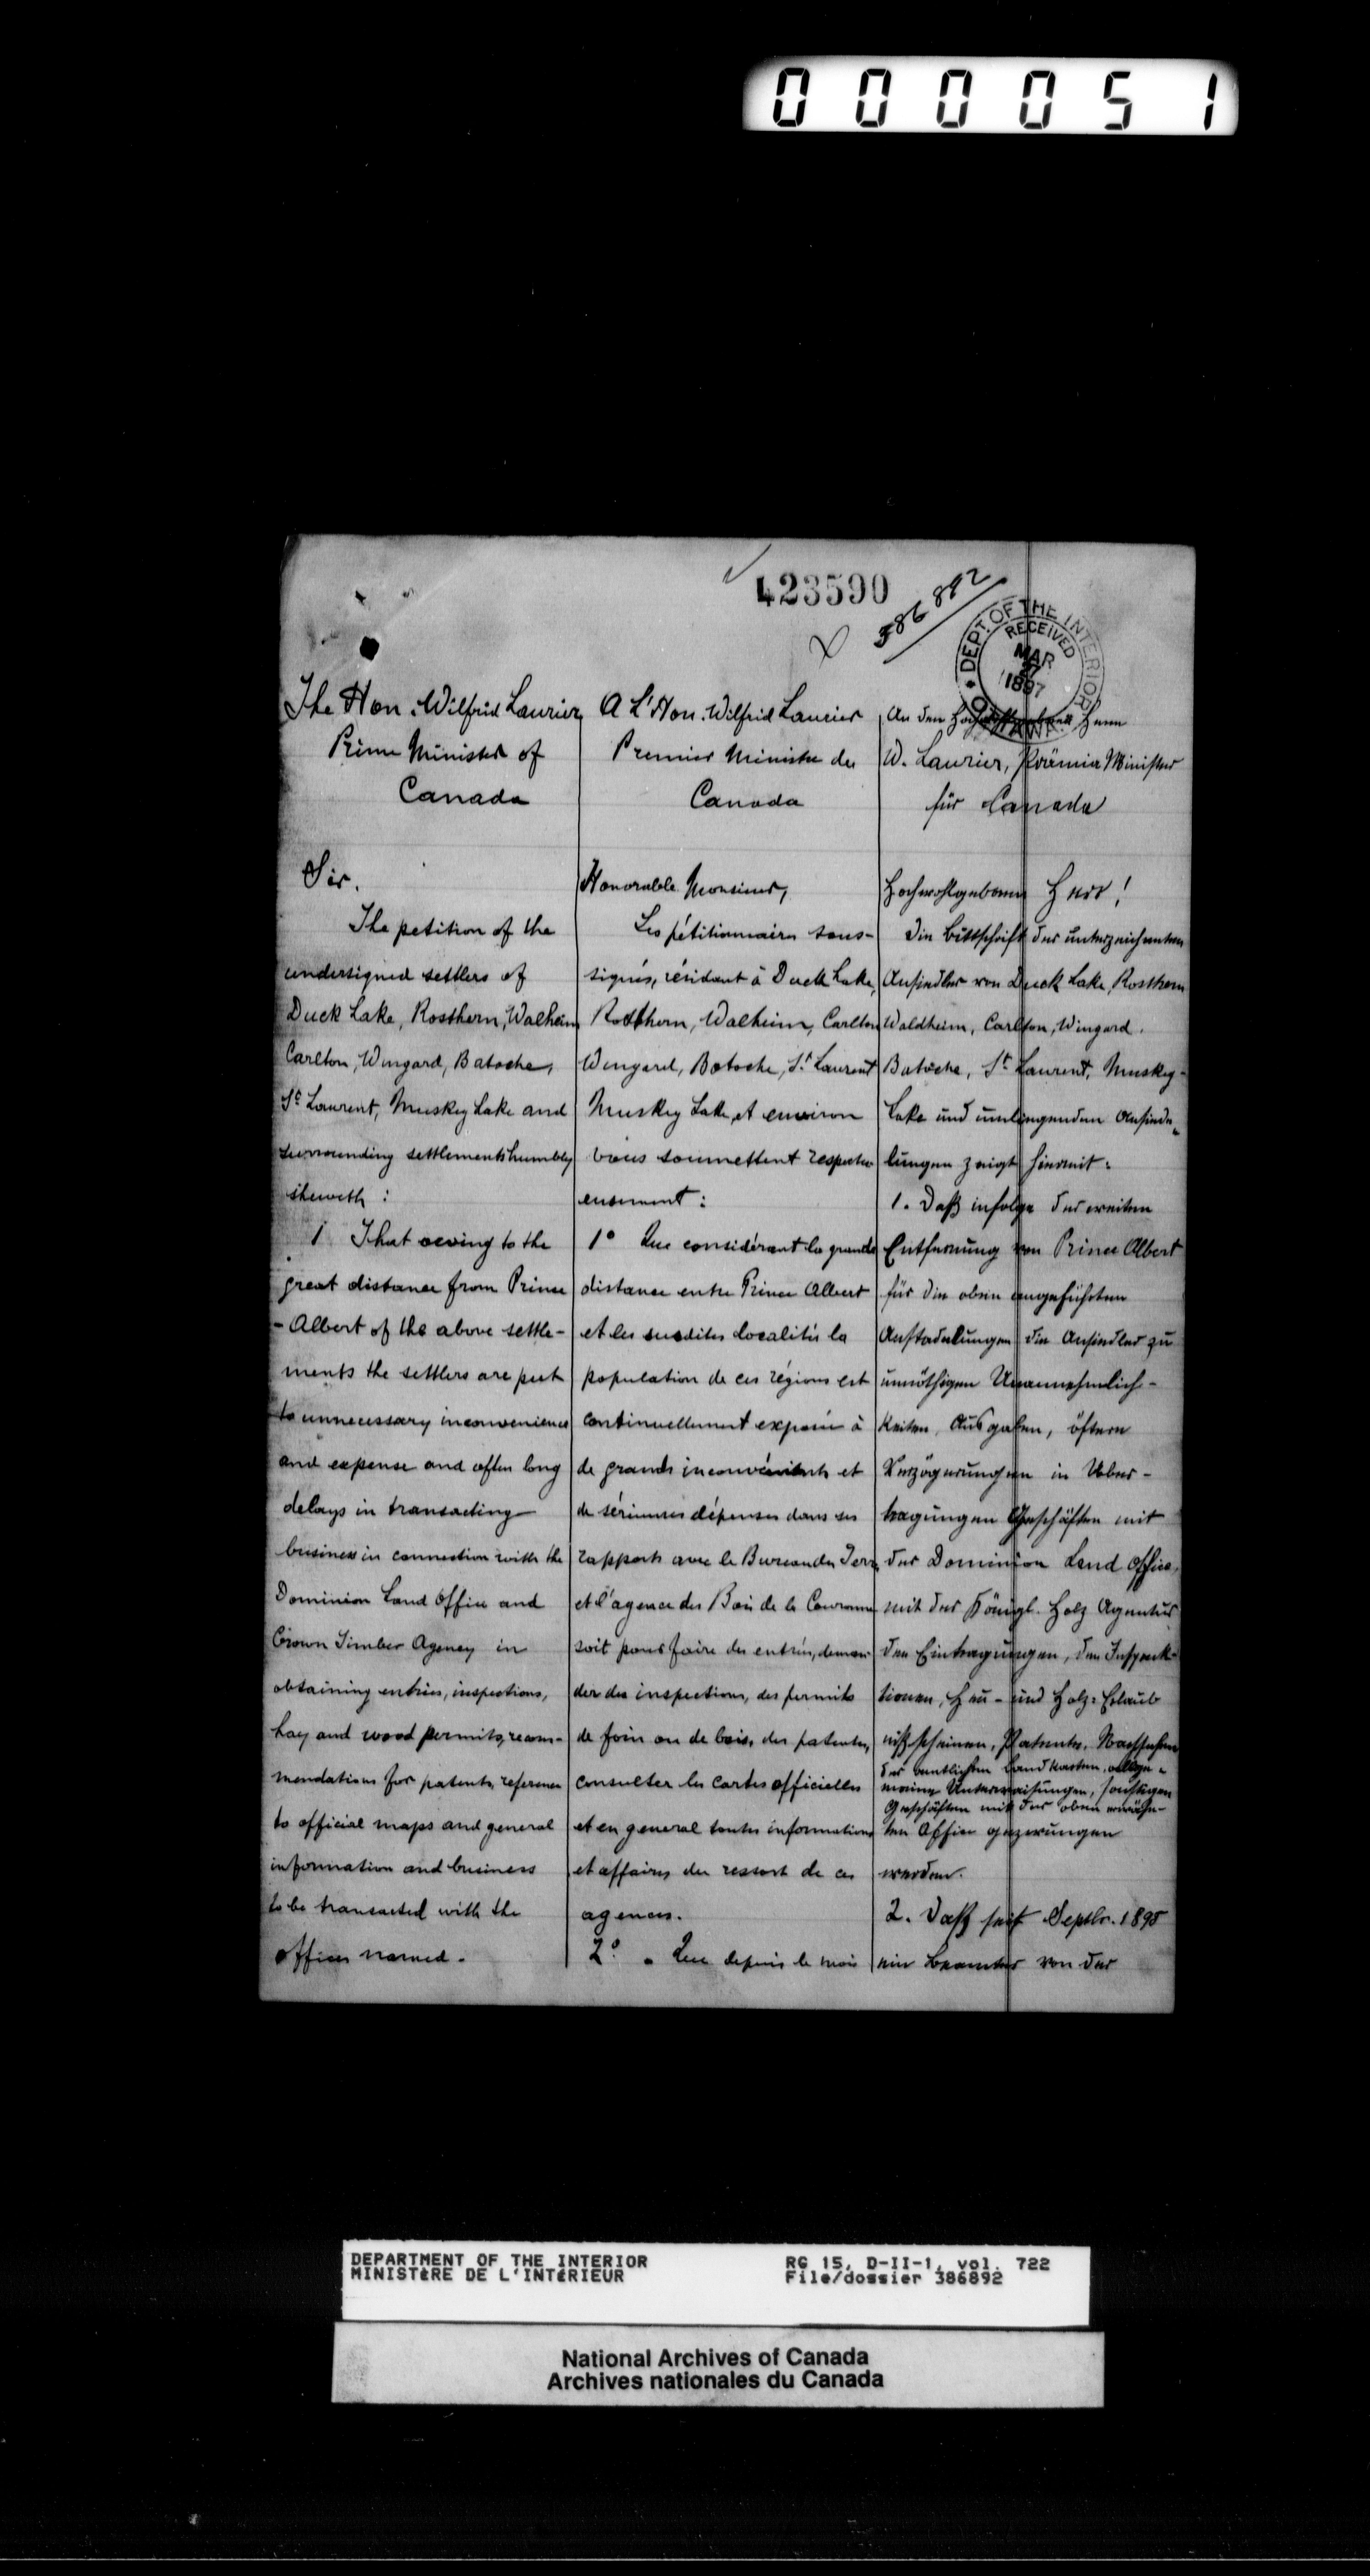 000051
423590
386892
DEPT. OF THE INTERIOR
RECEIVED
MAR
1897
The Hon. Wilfrid Laurier
Prime Minister of
Canada
Sir.
The petition of the
undersigned settlers of
Duck Lake, Rosthern, Walheim
Carlton, Wingard, Batoche,
St Laurent, Muskey Lake and
surrounding settlements humbly
sheweth :
1 That owing to the
great distance from Prince
- Albert of the above settle-
ments the settlers are put
to unnecessary inconvenience
and expense and often long
delays in transacting
business in connection with the
Dominion Land Office and
Crown Timber Agency in
obtaining entries, inspections,
hay and wood permits, recom-
mendations for patents, reference
to official maps and general
information and business
to be transacted with the
offices named.
A L'Hon. Wilfrid Laurier
Premier Ministre du
Canada
Honorable Monsieur,
Les pétitionnaires sous-
signés, résidant à Duck Lake,
Rosthern, Walheim, Carlton
Wingard, Batoche, St Laurent
Muskey Lake, et environ
vous soumettent respectu
eusement :
1° Que considérant la grande
distance entre Prince Albert
et les susdites localités la
population de ces régions est
continuellement exposée à
de grands inconvénients et
de sérieuses dépenses dans ses
rapports avec le Bureau des Terres
et l'agence des Bois de la Couronne
soit pour faire des entrées, deman
der des inspections, des permits
de foin ou de bois, des patentes,
consulter les cartes officielles
et en general toutes informations
et affaires du ressort de ces
agences.
2° . Que depuis le mois
An den Herrn
W. Laurier, Prämier Minister
für Canada
Hochwohlgeborner Herr !
Die Bittschrift der unterzeichneten
Ansiedler von Duck Lake, Rosthern
Waldheim, Carlton, Wingard.
Batoche, St Laurent, Muskey-
Lake und umliegenden Ansiede-
lungen zeigt hiermit:
1. Daß infolge der weiten
Entfernung von Prince Albert
für die oben angeführten
Anstedelungen die Ansiedler zu
unnöthigen Unannehmlich-
keiten, Ausgaben, öftern
Verzögerungen in Ueber-
tragungen Geschäften mit
der Dominion Land Office,
mit der Königl. Holz Agentur
den Eintragungen, den Inspek-
tionen, Heu- und Holz-Erlaub
nißscheinen, Patente, Nachsehen
der amtlichen Landkarten, allge-
meine Unterweisungen, sonstigen
Geschäften mit der oben erwähn-
ten Office gezwungen
werden.
2. Daß seit Septbr. 1895
ein Beamter von der
DEPARTMENT OF THE INTERIOR
MINISTÈRE DE L'INTÉRIEUR
RG 15, D-II-1, vol. 722
File/dossier 386892
National Archives of Canada
Archives nationales du Canada